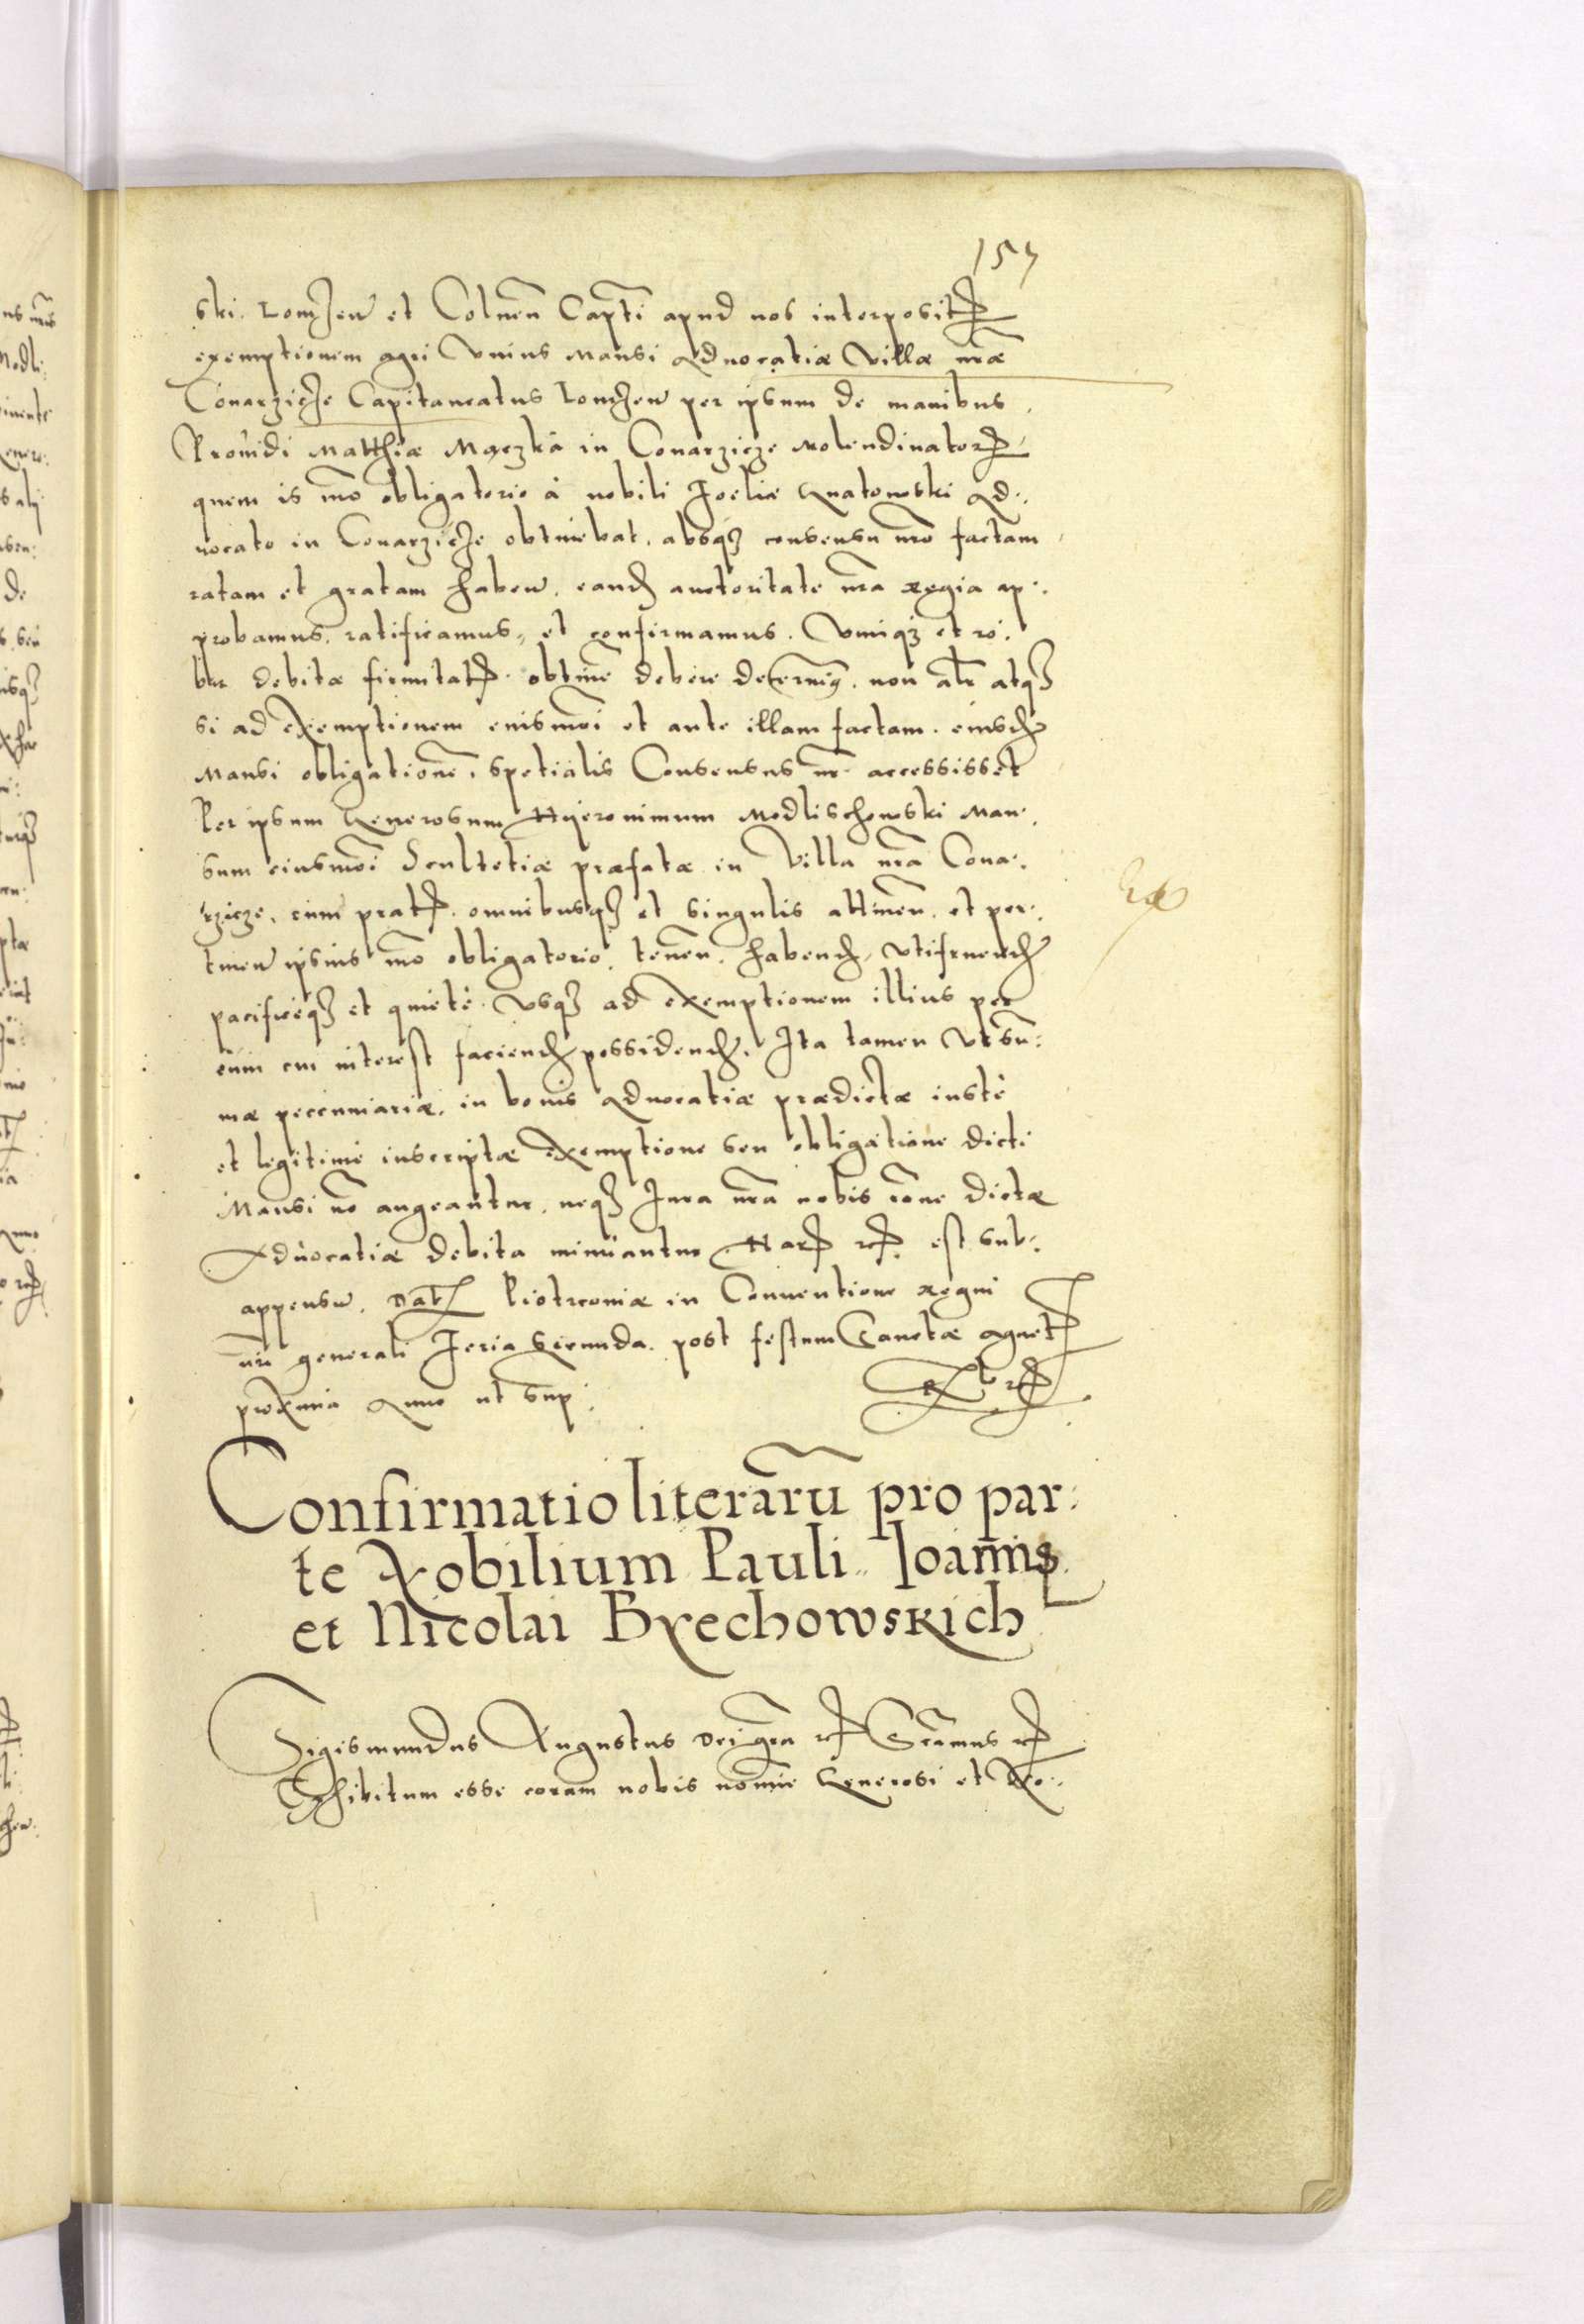 157
ski. Lomzen et Colnen̄ Capti apud nos interposit
exemptionem agri Vnius Mansi Aduocatiæ Villæ nr̄æ
Conarzicze Capitaneatus Lomzen per ipsum de manibus
Prouidi Matthiæ Mączka in Conarzicze Molendinatoris
quem is mō obligatorio à nobili Foelice Gnatowski Ad:
uocato in Conarzicze obtinebat, absq; consensu nrō factam
ratam et gratam haben. eand auctoritate nrā regia ap:
probamus, ratificamus, et confirmamus. Vimiq; et ro:
bur debitæ firmitatis obtinē debere decernimꝯ. non alr̄ atq;
si ad exemptionem eiusmōi et ante illam factam. eiusd
Mansi obligationē, spetialis Consensus nr̄ accessisset
Per ipsum Generosum Hyeronimum Modlischewski Man:
sum eiusmōi Scultetiæ præfatæ in Villa nrā Cona:
rzicze, cum pratis, omnibusq; et singulis attinen̄. et per:
tinen ipsius mō obligatorio, tenen̄. habend, vtifruend
pacificeq; et quietè. Vsq; ad exemptionem illius per
eum cui interest faciend possidend. Ita tamen vt sū:
mæ pecuniariæ, in bonis Aduocatiæ prædictæ iustè
et legitimè inscriptæ exemptione seu obligatione dicti
Mansi nō augeantur, neq; Iura nrā nobis rōne dictæ
Aduocatiæ debita minuantur Har rei est sub:
appensu. Dat Piotrcouiæ in Conuentione regni
nrī generali Feria Secunda. post festum Sanctæ Agnet
proxima Anno ut sup:
Confirmatio literarū pro par:
te Nobilium Pauli. Ioannis
et Nicolai Brechowskich
Sigismundus Augustus Dei grā rex Sgramus
Exhibitum esse coram nobis nomīe Generosi et No: